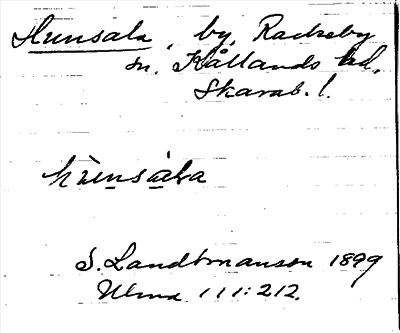 Hunsala, by, Rackeby
sn. Kållands hd,
Skarab. l.
hùnsàla
S. Landtmanson 1899
Ulma 111:212.